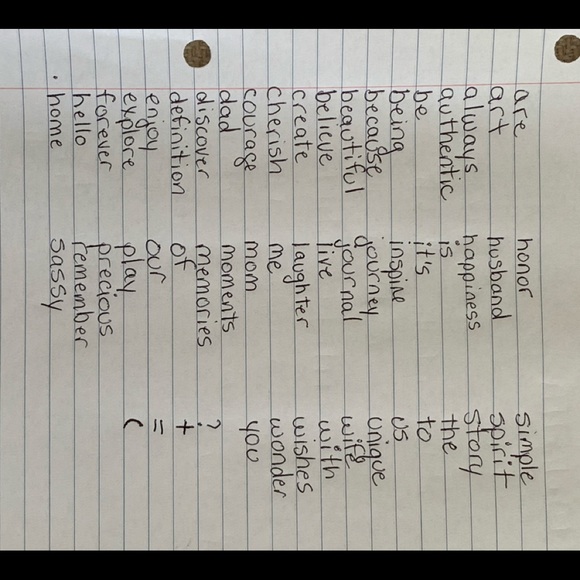 are
art
always
authentic
be
being
because
beautiful
believe
create
cherish
courage
dad
discover
definition
enjoy
explore
forever
hello
· home
honor
husband
happiness
is
it's
inspire
journey
journal
live
laughter
me
mom
moments
memories
of
our
play
precious
remember
sassy
simple
spirit
story
the
to
us
unique
wife
with
wishes
wonder
you
?
+
=
(